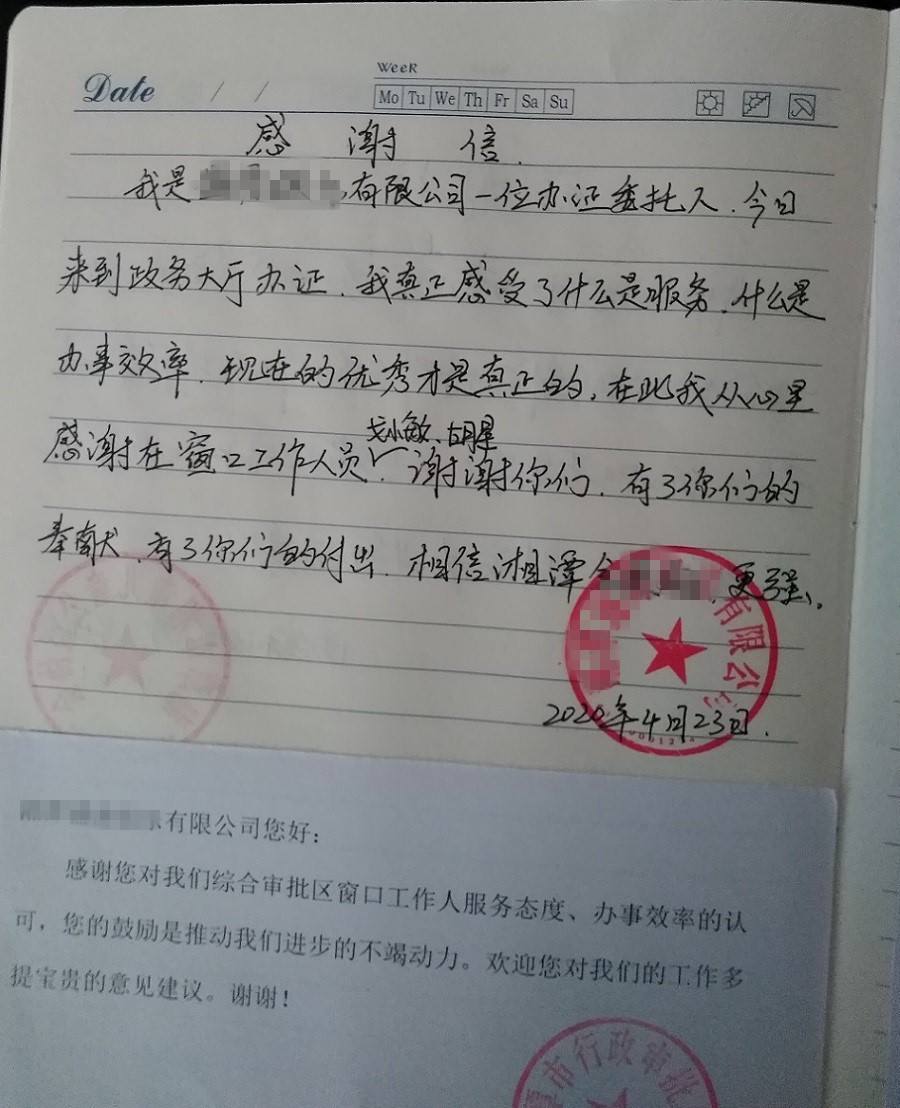 WEEK
Date / / Mo Tu We Th Fr Sa Su
感谢信.
我是 有限公司一位办证委托人.今日
来到政务大厅办证.我真正感受了什么是服务.什么是
办事效率.现在的优秀才是真正的,在此我从心里
戈小敏.胡星
感谢在窗口工作人员.谢谢你们.有了你们的
奉献.有了你们的付出.相信湘潭 更强.
有限公司
2020年4月23日.
有限公司您好:
感谢您对我们综合审批区窗口工作人服务态度、办事效率的认
可，您的鼓励是推动我们进步的不竭动力。欢迎您对我们的工作多
提宝贵的意见建议。谢谢！
市行政审批